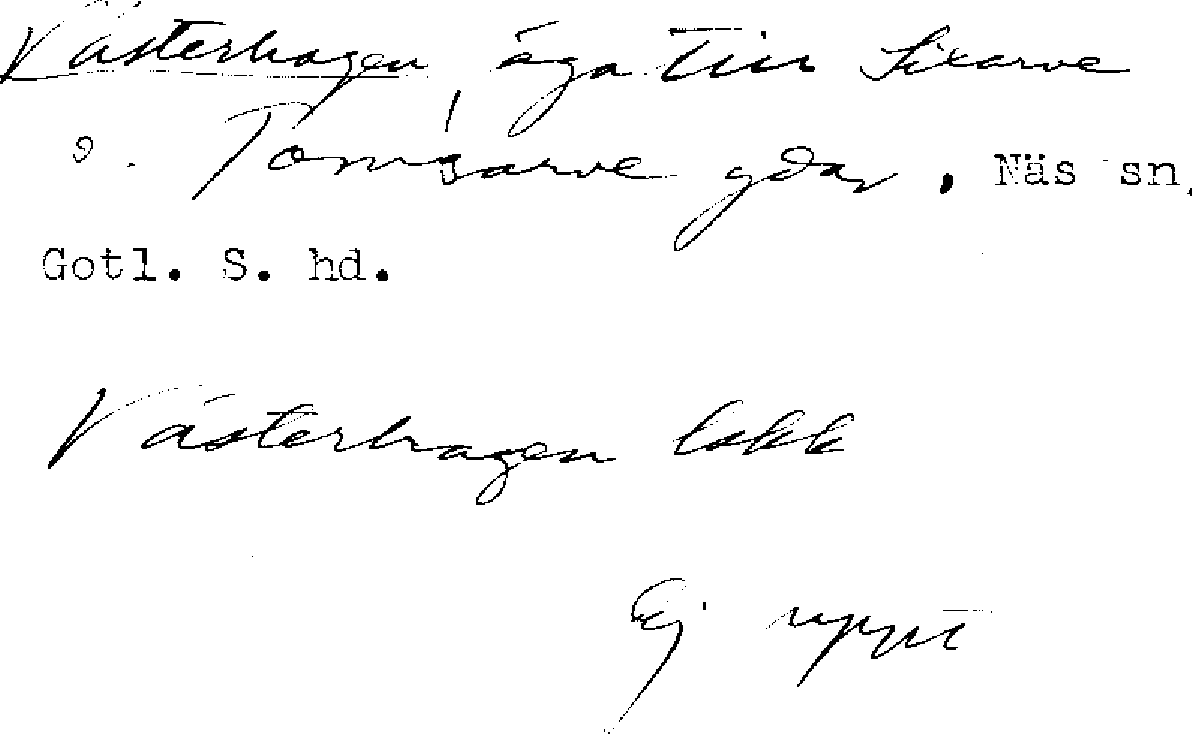 Västerhagen, äga till Sixarve
o. Tomsarve gdar, Näs sn,
Gotl. S. hd.
Västerhagen lskk
Ej uppt